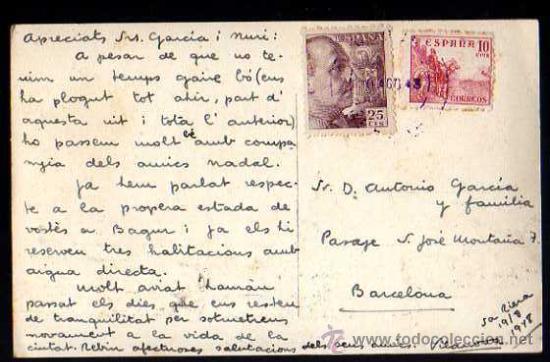 Apreciats Srs. García i Nuri:
A pesar de que no te-
nim un temps gaire bó (ens
ha plogut tot ahir, part d'
aquesta nit i tota l'anterior)
ho passem molt bé amb compa
nyia dels amics Nadal.
Ja hem parlat respec-
te a la propera estada de
vostès a Bagur i ja els hi
reserven tres habitacions amb
aigua directa.
Molt aviat hauràn
passat els dies que ens resten
de tranquilitat per sotmetrens
novament a la vida de la
ciutat. Rebin afectuoses salutacions dels seus amics.
ESPAÑA
25
CTS
ESPAÑA 10
CTS
CORREOS
AGO 48
Sr. D. Antonio García
y familia
Pasaje S. José Montaña 7.
Barcelona
Sa Riera
1948
todocoleccion.net